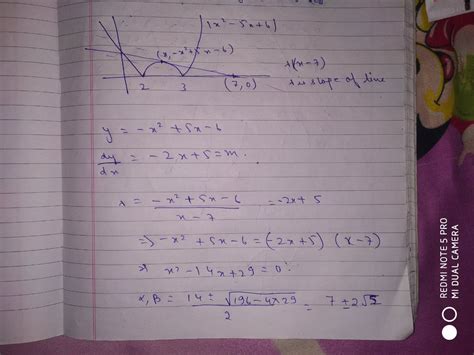 |x² - 5x + 6|
(x, -x² + 5x - 6)
λ(x - 7)
λ is slope of line
2 3 (7, 0)
y = -x² + 5x - 6
dy/dx = -2x + 5 = m.
λ = (-x² + 5x - 6)/(x - 7) = -2x + 5
⇒ -x² + 5x - 6 = (-2x + 5) (x - 7)
⇒ x² - 14x + 29 = 0
α, β = (14 ± √(196 - 4×29))/2 = 7 ± 2√5
REDMI NOTE 5 PRO
MI DUAL CAMERA